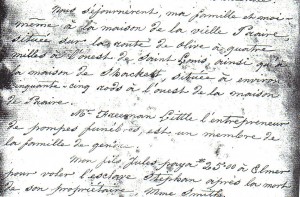 Nous séjournèrent, ma famille et moi-
même à la maison de la ville Prairie
située sur la route de Olive à quatre
milles à l'ouest de Saint Louis, ainsi qu'à
la maison de Shackett, située à environ
cinquante-cinq rods à l'ouest de la maison
de Prairie.
Mr. Little l'entrepreneur
de pompes funèbres est un membre de
la famille de gendre.
Mon fils Jules paya $25.00 à Elmer
pour voler l'esclave Stephan après la mort
de son propriétaire, Mme Smith.